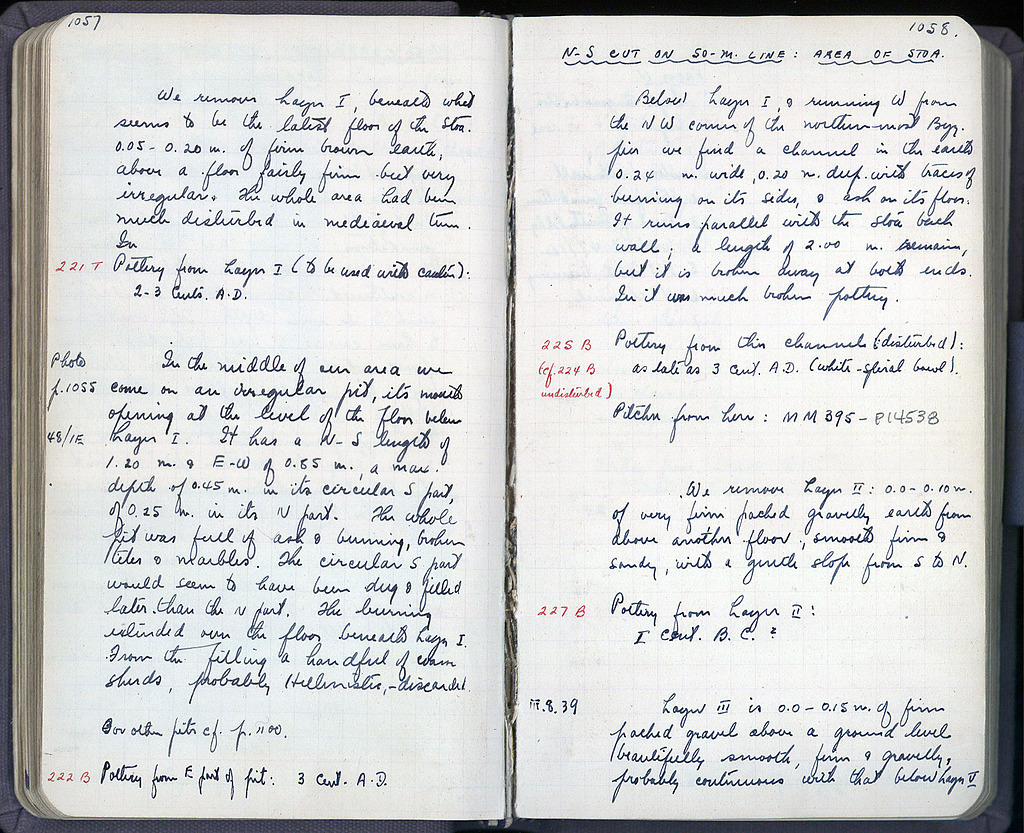 1057
We remove Layer I, beneath what
seems to be the latest floor of the Stoa.
0.05 - 0.20 m. of firm brown earth,
above a floor fairly firm but very
irregular. The whole area had been
much disturbed in mediaeval times.
In
221 T Pottery from Layer I (to be used with caution):
2-3 Cents. A.D.
Photo
p.1055
48/1E
In the middle of our area we
come on an irregular pit, its mouth
opening at the level of the floor below
Layer I. It has a N-S length of
1.20 m. & E-W of 0.85 m., a max.
depth of 0.45 m. in its circular S part,
of 0.25 m. in its N part. The whole
pit was full of ash & burning, broken
tiles & marbles. The circular S part
would seem to have been dug & filled
later than the N part. The burning
extended over the floor beneath Layer I.
From the filling a handful of coarse
sherds, probably Hellenistic, - discarded.
For other pits cf. p. 1100.
222 B Pottery from E part of pit: 3 Cent. A.D.
1058.
N-S CUT ON 50-M. LINE: AREA OF STOA.
Below Layer I, & running W from
the NW corner of the northern-most Byz.
pier we find a channel in the earth
0.24 m. wide, 0.20 m. deep with traces of
burning on its sides, & ash on its floor.
It runs parallel with the Stoa back
wall; a length of 2.00 m. remains,
but it is broken away at both ends.
In it was much broken pottery.
225 B Pottery from this channel (disturbed):
(cf. 224 B as late as 3 cent. A.D. (white-spiral bowl).
undisturbed)
Pitcher from here: MM 395 - P14538
We remove Layer II: 0.0 - 0.10 m.
of very firm packed gravelly earth from
above another floor, smooth firm &
sandy, with a gentle slope from S to N.
227 B Pottery from Layer II:
I cent. B.C. ?
III.8.39 Layer III is 0.0 - 0.15 m. of firm
packed gravel above a ground level
beautifully smooth, firm & gravelly,
probably continuous with that below Layer V